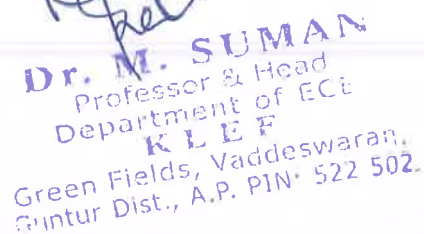 Dr. M. SUMAN
Professor & Head
Department of ECE
KLEF
Green Fields, Vaddeswaran,
Guntur Dist., A.P. PIN: 522 502.